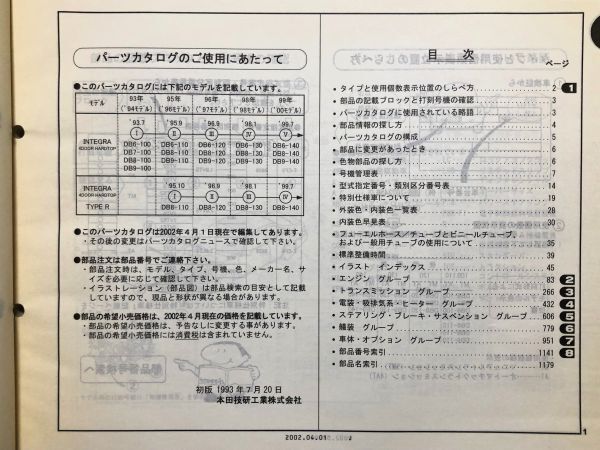 パーツカタログのご使用にあたって
●このパーツカタログには下記のモデルを記載しています。
モデル 93年 95年 96年 98年 99年
モデル ('94モデル) ('95モデル) ('97モデル) ('98モデル) ('00モデル)
'93.7 '95.9 '96.9 '98.1 '99.7
Ⅰ Ⅱ Ⅲ Ⅳ Ⅴ
INTEGRA
4DOOR HARDTOP
DB6-100 DB6-110 DB6-120 DB6-130 DB6-140
DB7-100 DB8-110 DB7-120 DB8-130 DB8-140
DB8-100 DB9-110 DB8-120
DB9-100
'95.10 '96.9 '98.1 '99.7
Ⅰ Ⅱ Ⅲ Ⅳ
INTEGRA
4DOOR HARDTOP
TYPE R
DB8-110 DB8-120 DB8-130 DB8-140
●このパーツカタログは2002年4月1日現在で編集してあります。
・その後の変更はパーツカタログニュースで確認して下さい。
●部品注文は部品番号でご連絡下さい。
・部品注文時は、モデル、タイプ、号機、色、メーカー名、サイズを必要に応じて確認して下さい。
・イラストレーション(部品図)は部品検索の目安として記載していますので、現品と形状が異なる場合があります。
●部品の希望小売価格は、2002年4月現在の価格を記載しています。
・部品の希望小売価格は、予告なしに変更する事があります。
・部品の希望小売価格には消費税は含まれていません。
初版 1993年7月20日
本田技研工業株式会社
目 次
ページ
・タイプと使用個数表示位置のしらべ方 2 1
・部品の記載ブロックと打刻号機の確認 3
・パーツカタログに使用されている略語 3
・部品情報の探し方 4
・パーツカタログの構成 5
・部品に変更があったとき 6
・色物部品の探し方 6
・号機管理表 7
・型式指定番号・類別区分番号表 14
・特別仕様車について 19
・外装色・内装色一覧表 28
・内装色早見表 30
・フューエルホース/チューブとビニールチューブ、
および一般用チューブの使用について 35
・標準整備時間 39
・イラスト インデックス 45
・エンジン グループ 83 2
・トランスミッション グループ 266 3
・電装・吸排気系・ヒーター グループ 432 4
・ステアリング・ブレーキ・サスペンション グループ 606 5
・艤装 グループ 779 6
・車体・オプション グループ 951 7
・部品番号索引 1141 8
・部品名索引 1179
2002.04.01
1